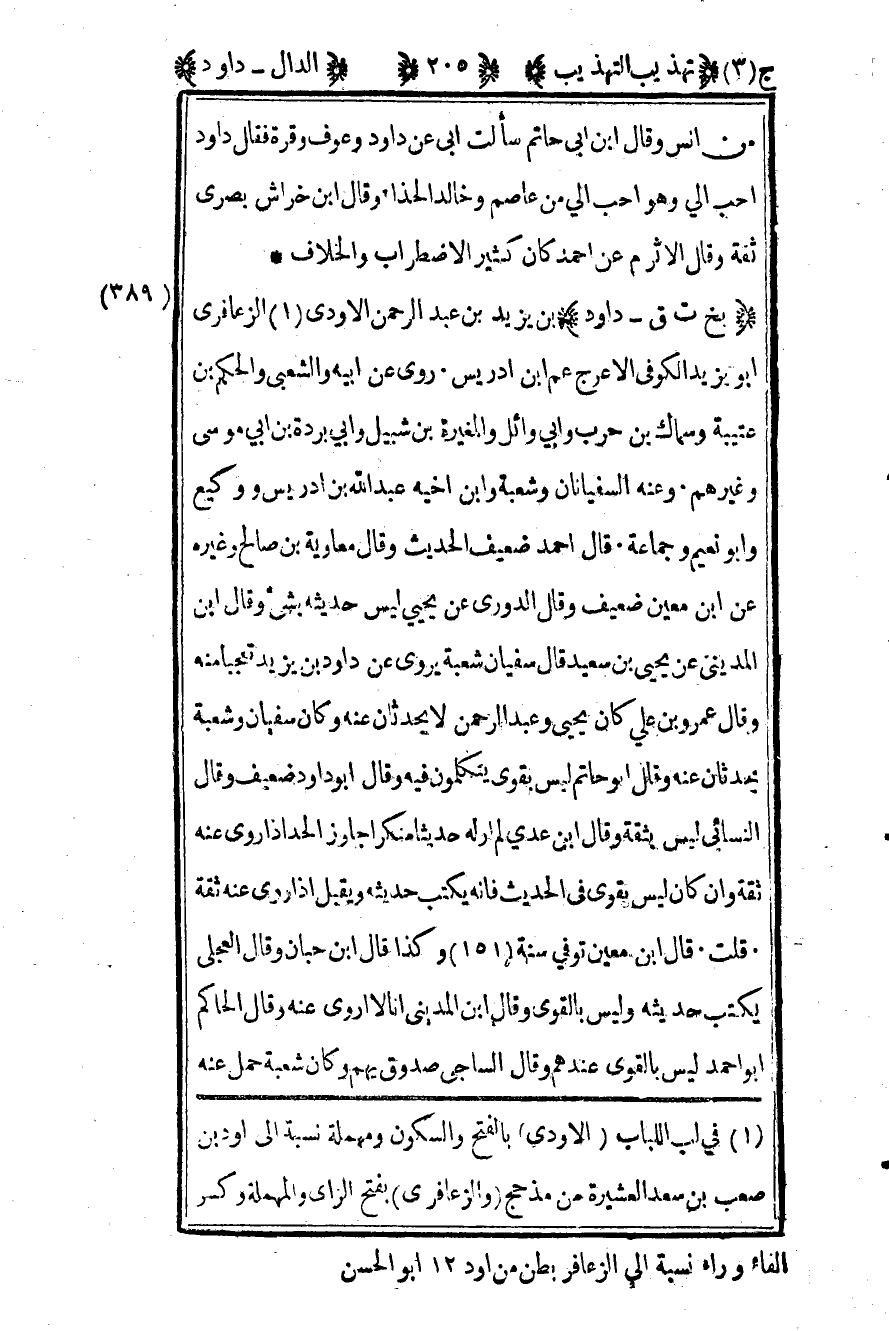 ج (٣) ﴿ تهذيب التهذيب ﴾ ﴿ ٢٠٥ ﴾ ﴿ الدال ـ داود ﴾
من انس وقال ابن ابى حاتم سألت ابى عن داود وعوف وقرة فقال داود
احب الي وهو احب الي من عاصم وخالد الحذاء وقال ابن خراش بصرى
ثقة وقال الاثرم عن احمد كان كثير الاضطراب والخلاف *
(٣٨٩) ﴿ بخ ت ق ـ داود ﴾ بن يزيد بن عبد الرحمن الاودى (١) الزعافرى
ابو يزيد الكوفى الاعرج عم ابن ادريس · روى عن ابيه والشعبى والحكم بن
عتيبة وسماك بن حرب وابي وائل والمغيرة بن شبيل وابي بردة بن ابي موسى
وغيرهم · وعنه السفيانان وشعبة وابن اخيه عبد الله بن ادريس و وكيع
وابو نعيم وجماعة · قال احمد ضعيف الحديث وقال معاوية بن صالح وغيره
عن ابن معين ضعيف وقال الدورى عن يحيي ليس حديثه بشئ وقال ابن
المدينى عن يحيى بن سعيد قال سفيان شعبة يروى عن داود بن يزيد تعجبا منه
وقال عمرو بن علي كان يحيى وعبد الرحمن لا يحدثان عنه وكان سفيان وشعبة
يحدثان عنه وقال ابو حاتم ليس بقوى يتكلمون فيه وقال ابو داود ضعيف وقال
النسائى ليس بثقة وقال ابن عدي لم ار له حديثا منكرا جاوز الحد اذا روى عنه
ثقة وان كان ليس بقوى فى الحديث فانه يكتب حديثه ويقبل اذا روى عنه ثقة
· قلت · قال ابن معين توفي سنة (١٥١) وكذا قال ابن حبان وقال العجلى
يكتب حديثه وليس بالقوى وقال ابن المدينى انا لا اروى عنه وقال الحاكم
ابو احمد ليس بالقوى عندهم وقال الساجى صدوق يهم وكان شعبة حمل عنه
(١) في لب اللباب (الاودى) بالفتح والسكون ومهملة نسبة الى اود بن
صعب بن سعد العشيرة من مذحج (والزعافرى) بفتح الزاى والمهملة وكسر
الفاء وراء نسبة الي الزعافر بطن من اود ١٢ ابو الحسن